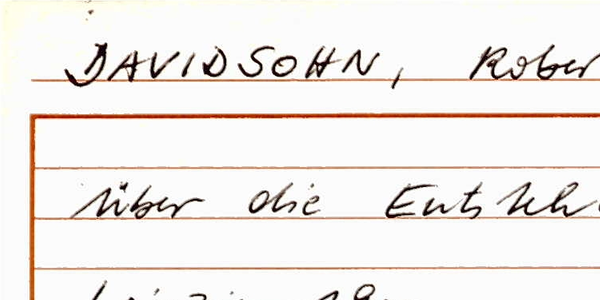 DAVIDSOHN, Rober
über die Entsteh